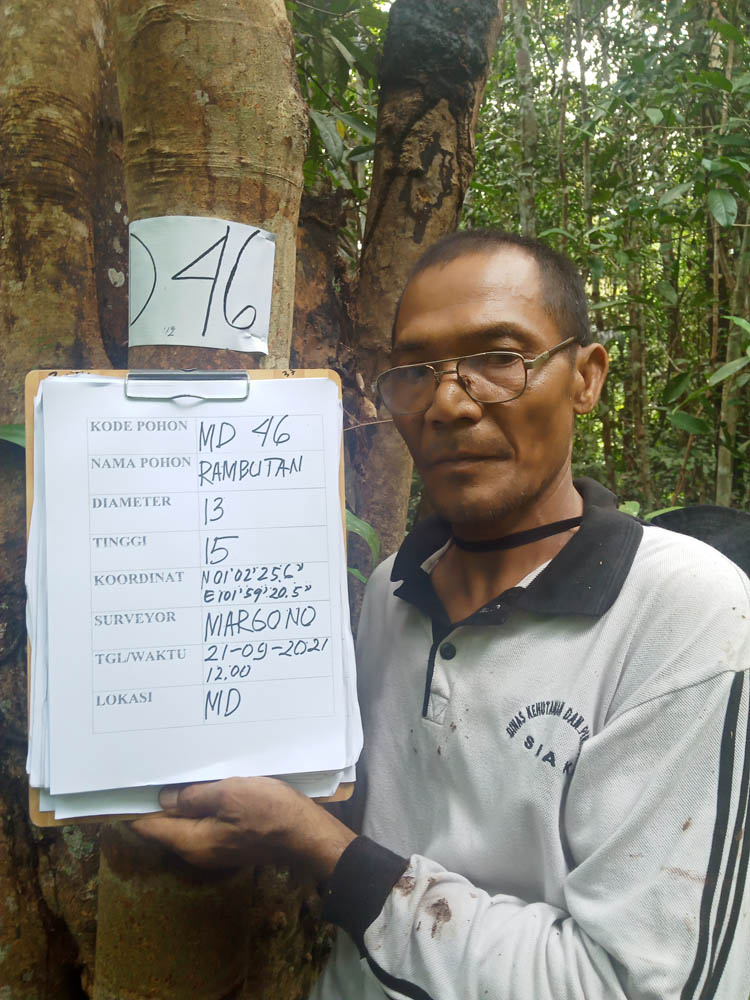 ) 46
KODE POHON MD 46
NAMA POHON RAMBUTAN
DIAMETER 13
TINGGI 15
KOORDINAT N 01°02'25.6"
E 101°59'20.5"
SURVEYOR MARGONO
TGL/WAKTU 21-09-2021
12.00
LOKASI MD
DINAS KEHUTANAN DAN
SIAK